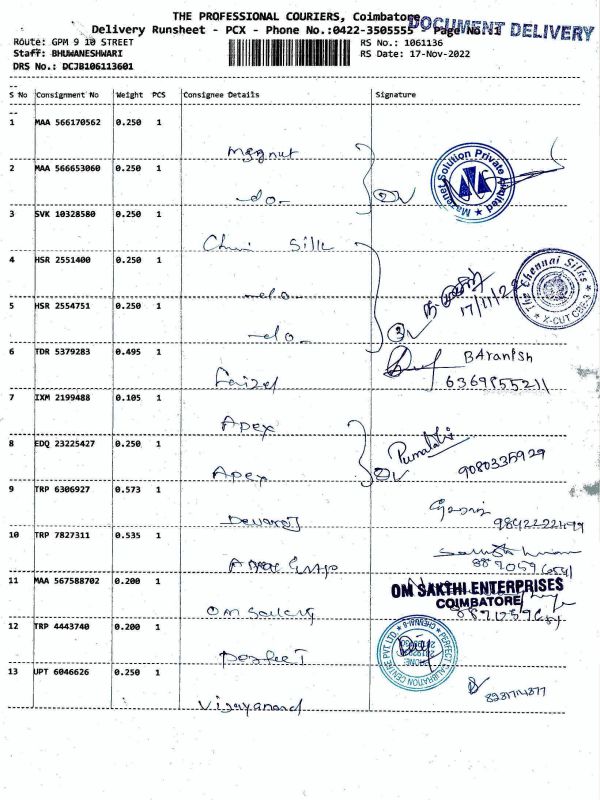 THE PROFESSIONAL COURIERS, Coimbatore
DOCUMENT DELIVERY
Delivery Runsheet - PCX - Phone No.:0422-3505555 Page No.:1
Route: GPM 9 10 STREET
RS No.: 1061136
Staff: BHUWANESHWARI
RS Date: 17-Nov-2022
DRS No.: DCJB106113601
S No Consignment No Weight PCS Consignee Details Signature
1 MAA 566170562 0.250 1
Magnut
2 MAA 566653060 0.250 1
-do- 2
Mazenet Solution Private Limited
3 SVK 10328580 0.250 1
Chni Silk
4 HSR 2551400 0.250 1
-do-
17/11/22
The Chennai Silks
X-CUT CBE-3
5 HSR 2554751 0.250 1
-do- 3
6 TDR 5379283 0.495 1
BAranish
Faizel
6369855211
7 IXM 2199488 0.105 1
Apex
8 EDQ 23225427 0.250 1
Apex 2
9080335929
9 TRP 6306927 0.573 1
Devaraj
10 TRP 7827311 0.535 1
11 MAA 567588702 0.200 1
OM SAKTHI ENTERPRISES
COIMBATORE
Om Sakthi
12 TRP 4443740 0.200 1
PERFECT CALIBRATION CENTRE PVT LTD
CHENNAI-8
Perfect
13 UPT 6046626 0.250 1
Vijayanand